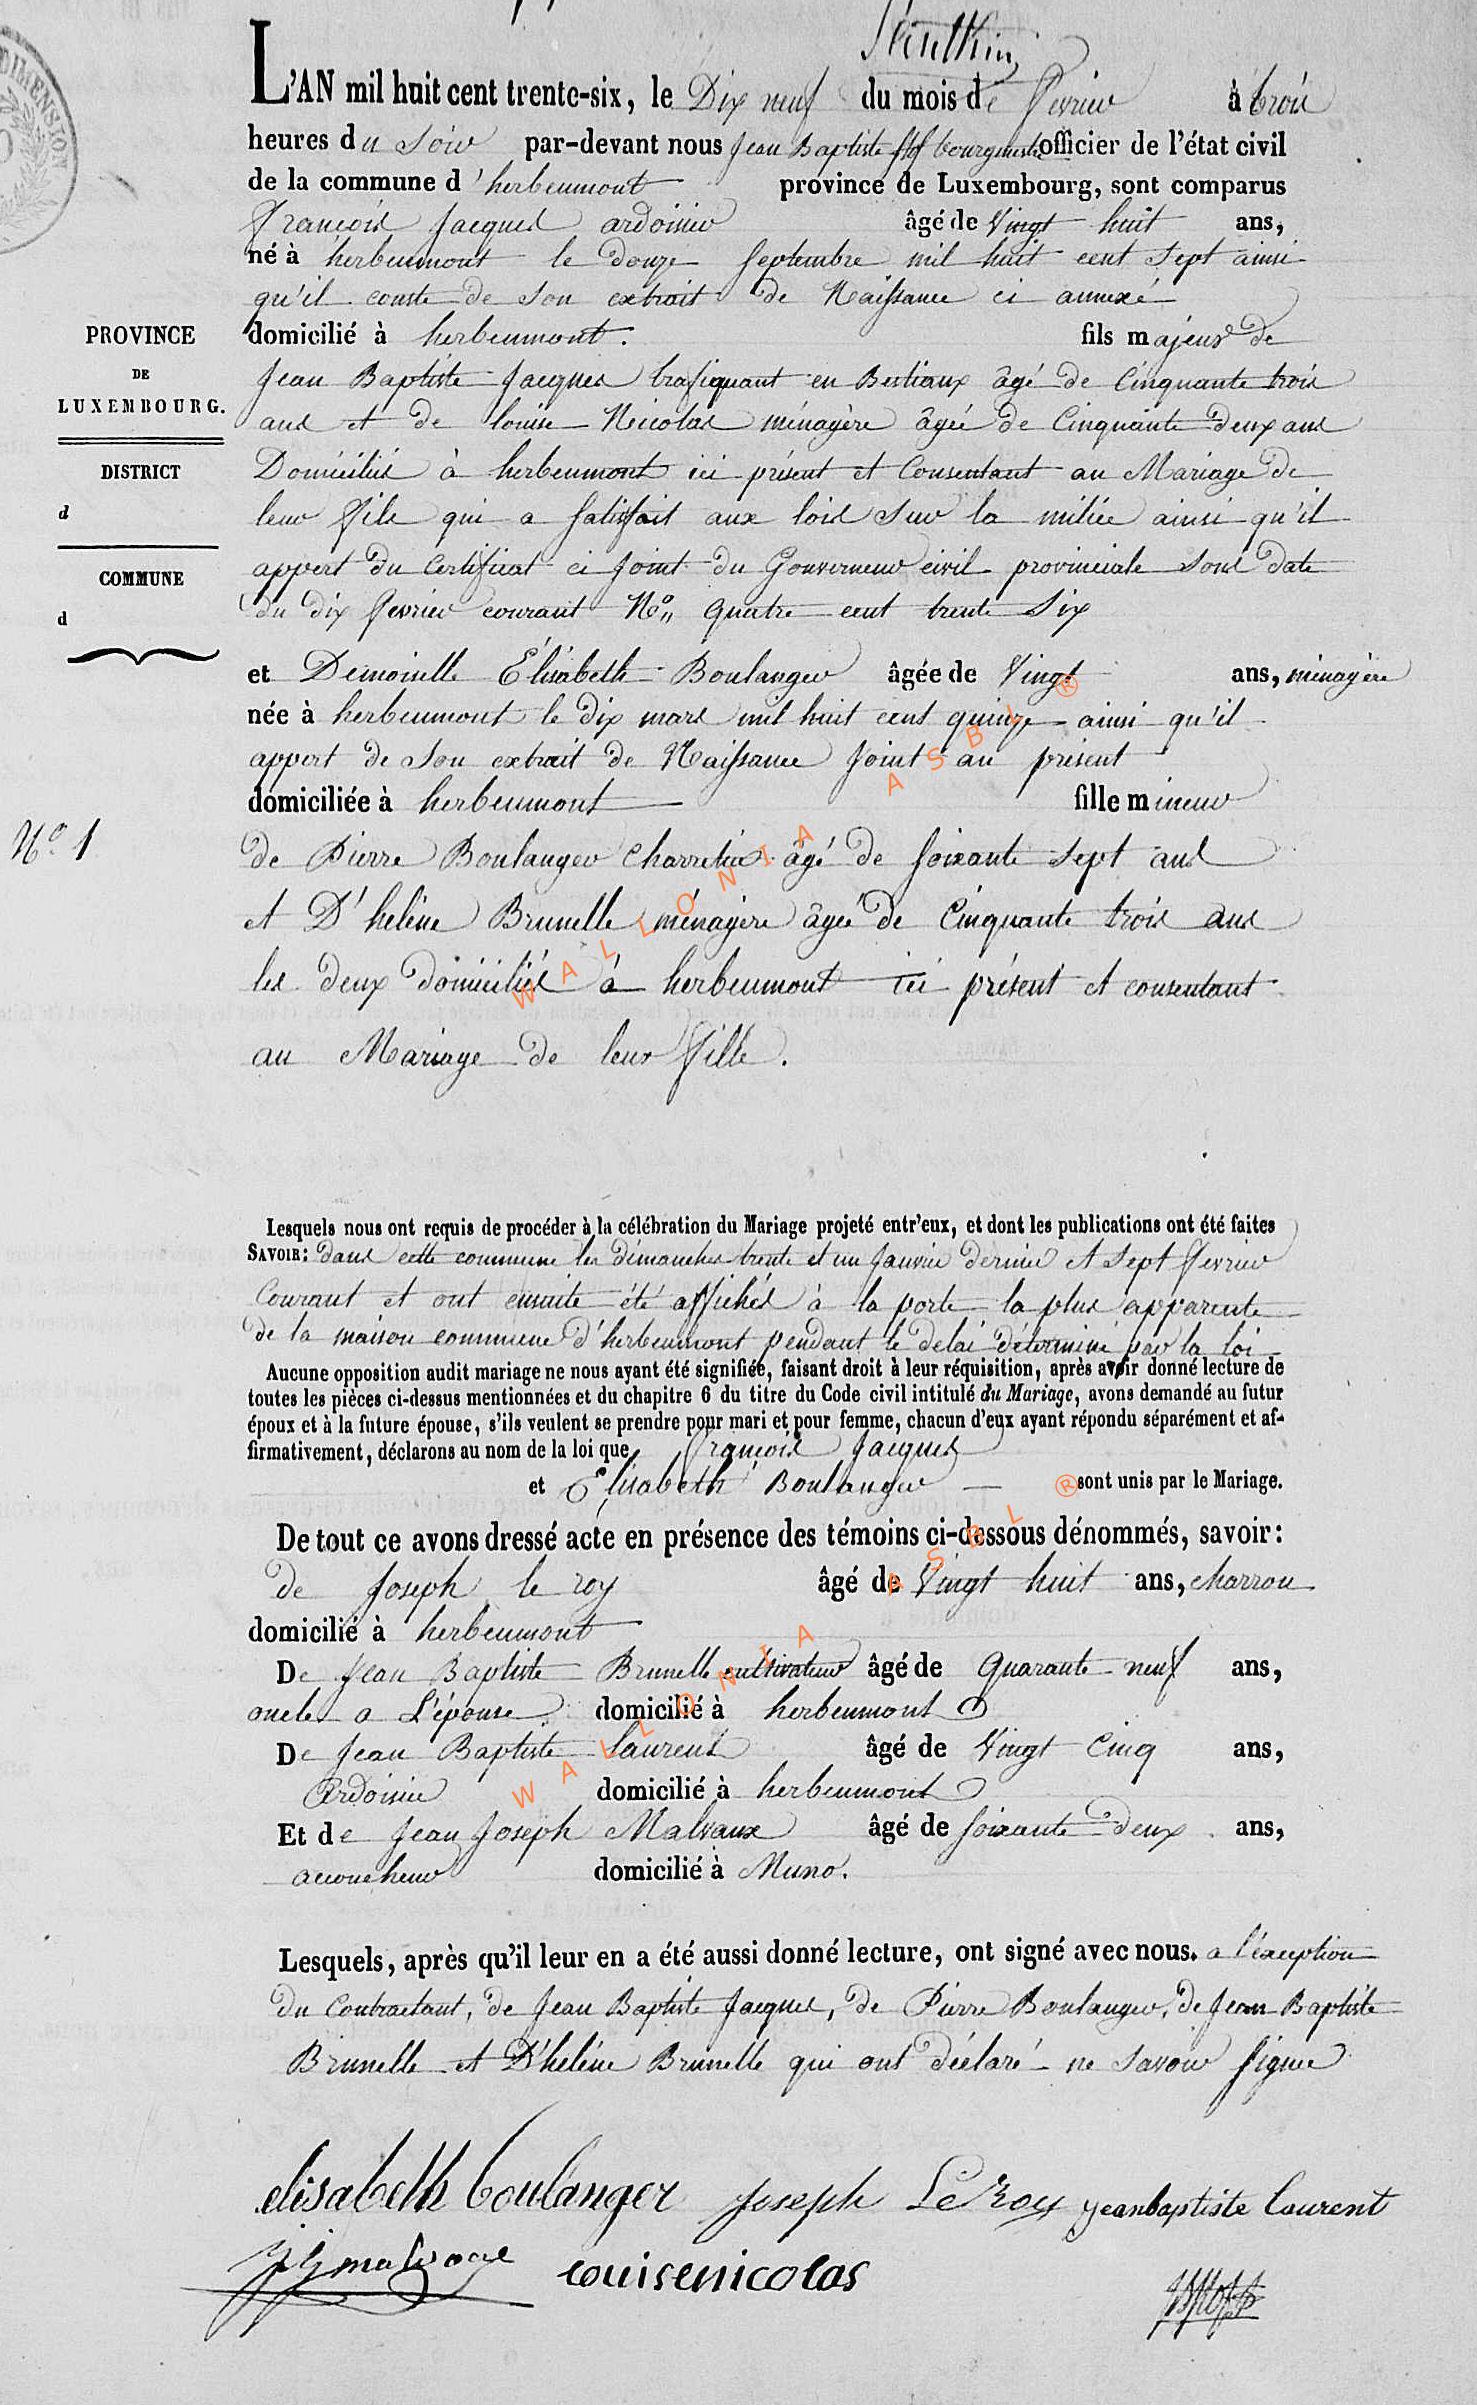 L'AN mil huit cent trente-six, le Dix neuf du mois de fevrier à trois
heures du Soir par-devant nous Jean Baptiste bourgmestre officier de l'état civil
de la commune d'herbeumont province de Luxembourg, sont comparus
françois Jacques ardoisier âgé de Vingt huit ans,
né à herbeumont le douze Septembre mil huit cent sept ainsi
qu'il conste de Son extrait de Naissance ci annexé
domicilié à herbeumont. fils majeur de
Jean Baptiste Jacques trafiquant en Bestiaux âgé de Cinquante trois
ans et de louise Nicolas ménagère âgée de Cinquante deux ans
Domiciliés à herbeumont ici présent et Consentant au Mariage de
leur fils qui a Satisfait aux lois Sur la milice ainsi qu'il
appert du Certificat ci Joint du Gouverneur civil provinciale Sous date
du dix fevrier courant No,, quatre cent trente Six
PROVINCE
DE
LUXEMBOURG.
DISTRICT
d
COMMUNE
d
et Demoiselle Élisabeth Boulanger âgée de Vingt ans, ménagère
née à herbeumont le dix mars mil huit cent quinze ainsi qu'il
appert de Son extrait de Naissance Joint au présent
domiciliée à herbeumont fille mineur
No 1
de Pierre Boulanger Charretier âgé de Soixante Sept ans
et D'heléne Brunelle ménagère âgée de Cinquante trois ans
les deux domiciliés à herbeumont ici présent et consentant
au Mariage de leur fille.
Lesquels nous ont requis de procéder à la célébration du Mariage projeté entr'eux, et dont les publications ont été faites
SAVOIR: dans cette commune les dimanches trente et un Janvier dernier et Sept fevrier
Courant et ont ensuite été affichés à la porte la plus apparente
de la maison commune d'herbeumont pendant le delai déterminé par la loi
Aucune opposition audit mariage ne nous ayant été signifiée, faisant droit à leur réquisition, après avoir donné lecture de
toutes les pièces ci-dessus mentionnées et du chapitre 6 du titre du Code civil intitulé du Mariage, avons demandé au futur
époux et à la future épouse, s'ils veulent se prendre pour mari et pour femme, chacun d'eux ayant répondu séparément et af-
firmativement, déclarons au nom de la loi que françois Jacques
et Élisabeth Boulanger sont unis par le Mariage.
De tout ce avons dressé acte en présence des témoins ci-dessous dénommés, savoir:
de Joseph le roy âgé de Vingt huit ans, charron
domicilié à herbeumont
De Jean Baptiste Brunelle cultivateur âgé de Quarante neuf ans,
oncle a L'épouse domicilié à herbeumont
De Jean Baptiste Laurent âgé de Vingt Cinq ans,
Ardoisier domicilié à herbeumont
Et de Jean Joseph Malvaux âgé de Soixante deux ans,
accoucheur domicilié à Muno.
Lesquels, après qu'il leur en a été aussi donné lecture, ont signé avec nous. a l'exception
du Contractant, de Jean Baptiste Jacques, de Pierre Boulanger, de Jean Baptiste
Brunelle et D'heléne Brunelle qui ont déclaré ne Savoir Signer
elisabeth boulanger Joseph Le Roy jeanbaptiste Laurent
louisenicolas
WALLONIA ASBL ®
WALLONIA ASBL ®